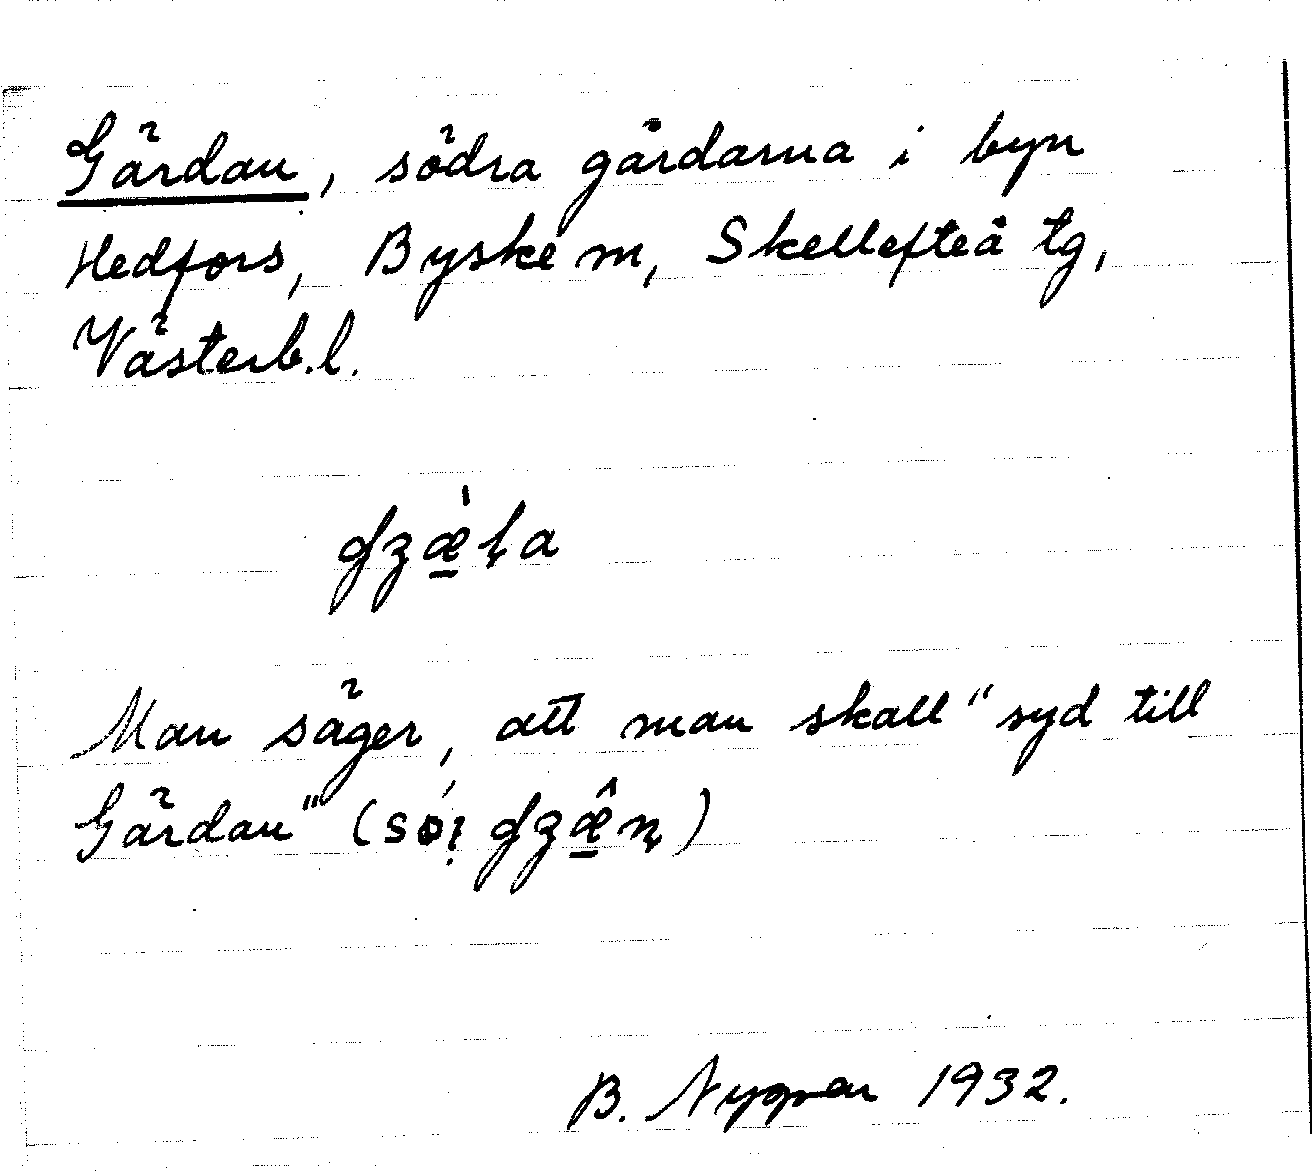 Gärdan, södra gårdarna i byn
Hedfors, Byske sn, Skellefteå tg,
Västerb.l.
Man säger, att man skall "syd till
Gärdan" (
B. Nygren 1932.